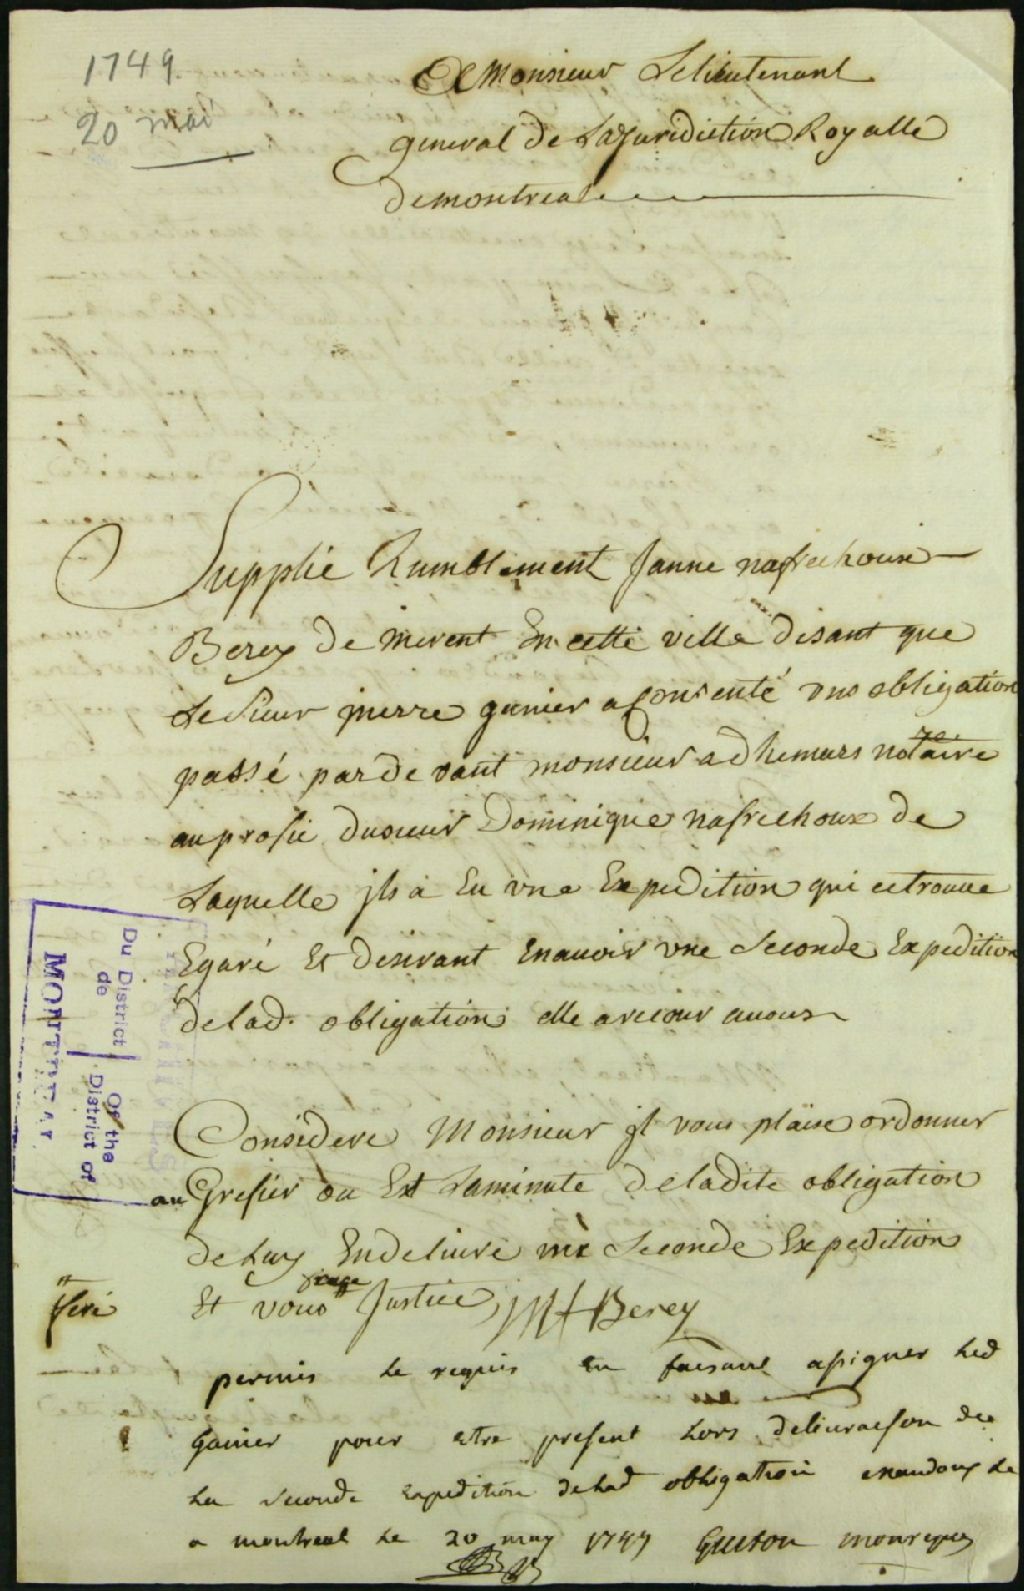 1749
20 mai
A Monsieur Lelieutenant
general de LaJuridiction Royalle
demontreal
Supplie Humblement Janne nafrechoux
Berey de merent En cette ville disant que
Le Sieur pierre garnier a Consenté une obligation
passé par de vant monsieur adhemars notaire
au profit dusieur Dominique nafrechoux de
Laquelle jls a Eu vne Expedition qui cetrouue
Egaré Et desirant Enauoir vne Seconde Expedition
delad. obligation elle arecour auous
Considere Monsieur jl vous plaise ordonner
au Grefier ou Est Laminute deladite obligation
de Luy Endeliuré vne Seconde Expedition
Et vous Justice JM Berey
feré
permis le requis en faisant assigner led
Garnier pour etre present lors deliuraison de
La seconde Expedition delad obligation
a montreal le 20 may 1749 Guiton monrepos
Du District
de
MONTREAL
Of the
District of